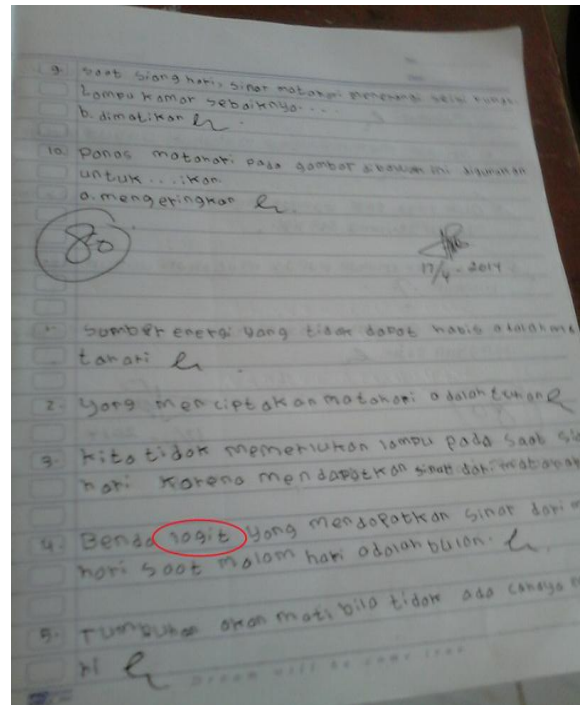 9. Saat siang hari, sinar matahari menerangi seisi rumah.
Lampu kamar sebaiknya...
b. dimatikan
10. Panas matahari pada gambar dibawah ini digunakan
untuk ... ikan.
a. mengeringkan
80
17/4-2014
1. Sumber energi yang tidak dapat habis adalah ma
tahari
2. yang menciptakan matahari adalah tuhan
3. kita tidak memerlukan lampu pada saat sia
hari karena mendapatkan sinar dari matahari
4. Benda lagit yang mendapatkan sinar dari
hari saat malam hari adalah bulan.
5. Tumbuhan akan mati bila tidak ada cahaya
ri
Dream will be come true